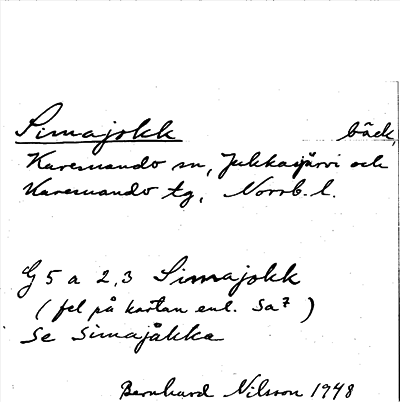 Simajokk bäck,
Karesuando sn, Jukkasjärvi och
Karesuando tg, Norrb. l.
G 5 a 2,3 Simajokk
(fel på kartan enl. Sa⁷)
Se Simajåkka
Bernhard Nilsson 1948